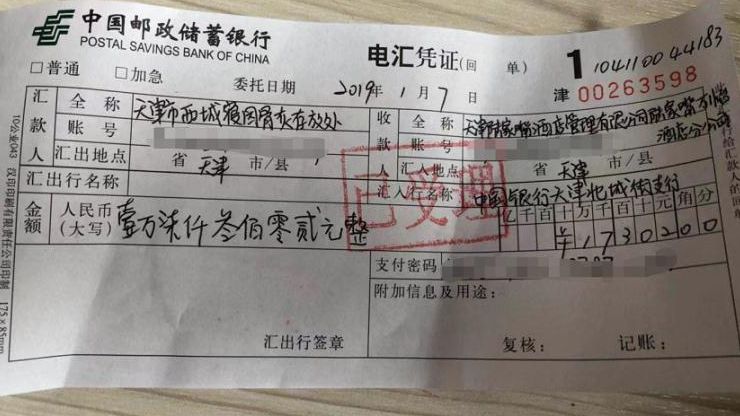 中国邮政储蓄银行
POSTAL SAVINGS BANK OF CHINA
电汇凭证(回 单) 1 1041100 44183
□普通 □加急 委托日期 2019年 1月 7日 津 00263598
汇款人 全称 天津市西城寝园骨灰存放处 收款人 全称 天津陆家嘴酒店管理有限公司陆家嘴
酒店分公司
账号 账号
汇出地点 省 天津 市/县 汇入地点 省 天津 市/县
汇出行名称 汇入行名称 中国银行天津北城街支行
金额 人民币(大写) 壹万柒仟叁佰零贰元整 亿千百十万千百十元角分
¥1730200
已受理
支付密码
附加信息及用途:
汇出行签章 复核: 记账:
10公业043 汉印印刷有限责任公司印制 175×85mm
行给汇款人的回单